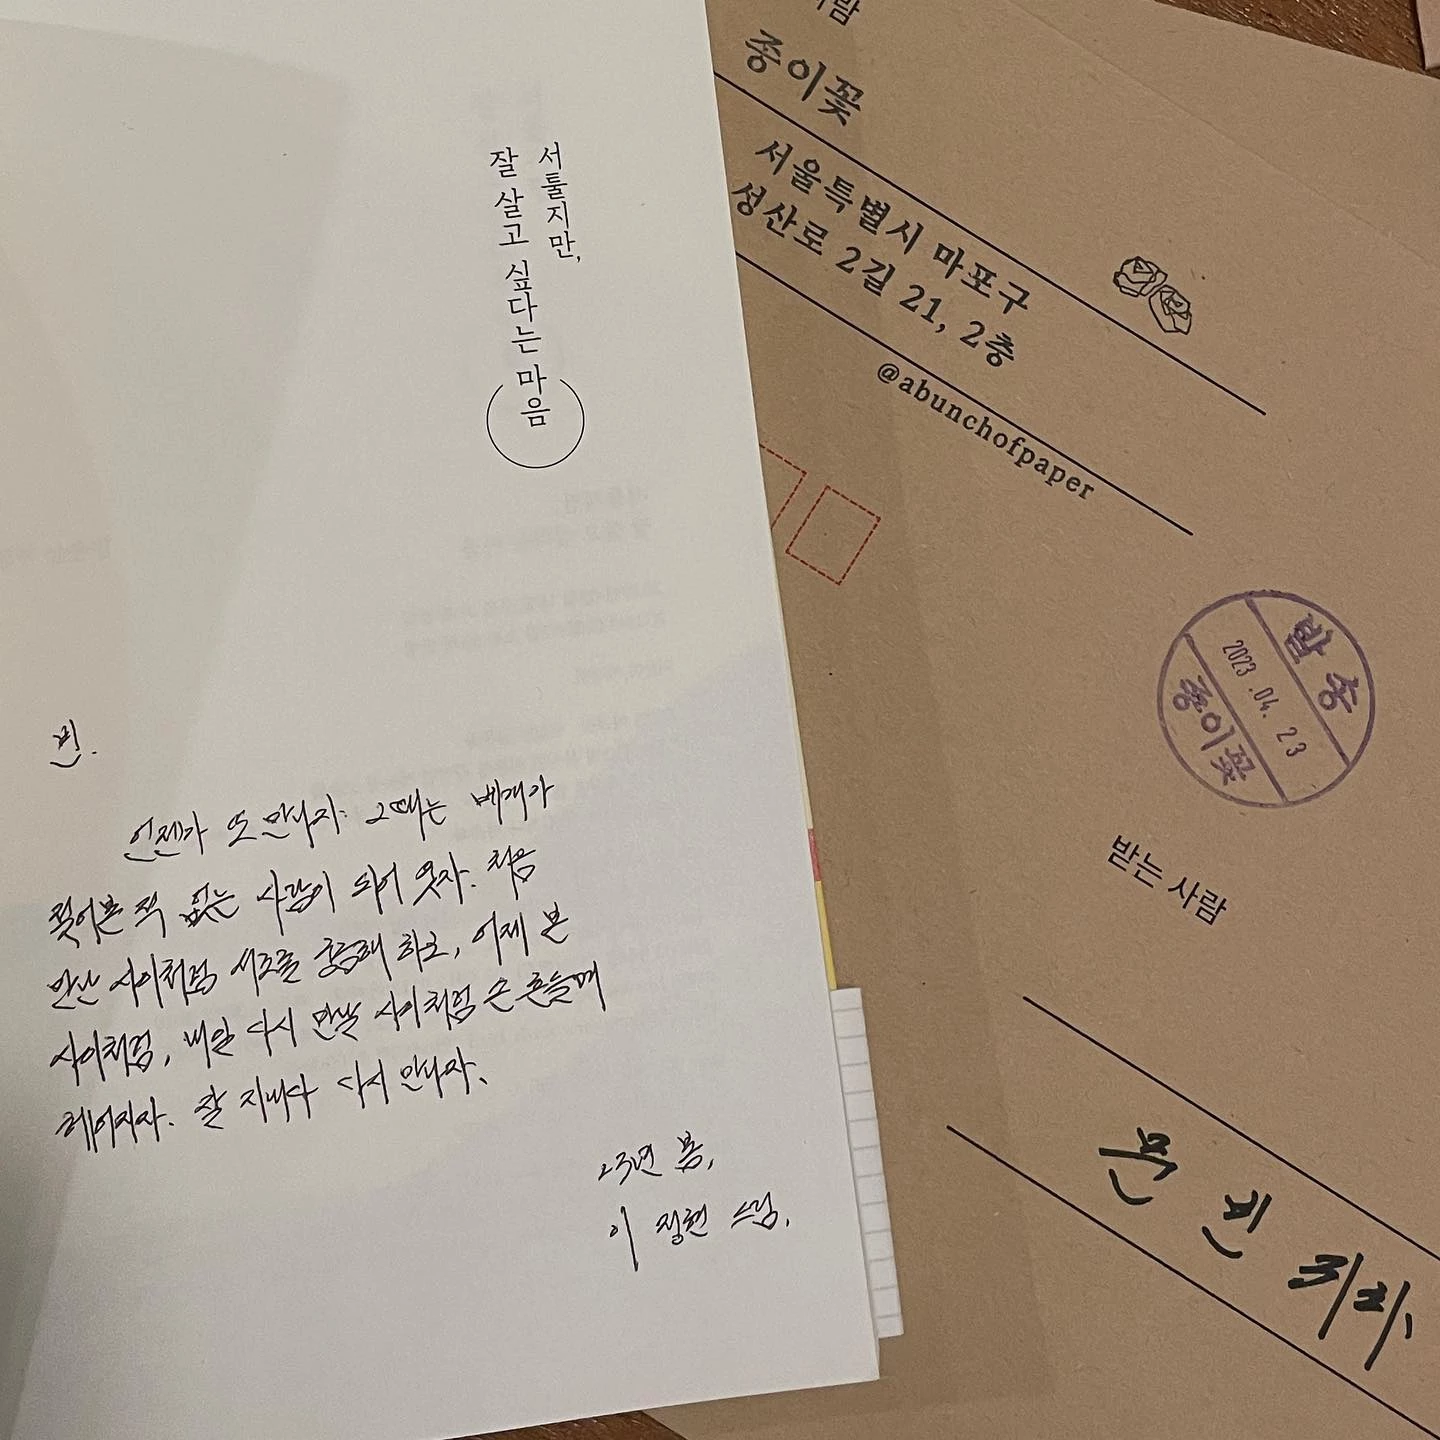 서툴지만,
잘 살고 싶다는 마음
빈.
언젠가 또 만나자. 그때는 베개가
젖어본 적 없는 사람이 되어 웃자. 처음
만난 사이처럼 서로를 궁금해 하고, 어제 본
사이처럼, 내일 다시 만날 사이처럼 손 흔들며
헤어지자. 잘 지내다 다시 만나자.
23년 봄,
이정현 드림.
사람
종이꽃
서울특별시 마포구
성산로 2길 21, 2층
@abunchofpaper
발송
2023.04.23
종이꽃
받는 사람
문빈 귀하